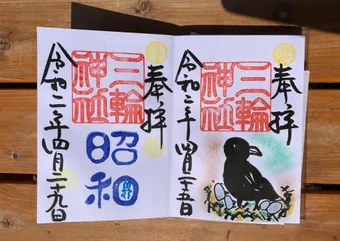 奉拝
三輪
神社
昭和
令和二年四月二十九日
奉拝
三輪
神社
令和二年四月二十五日